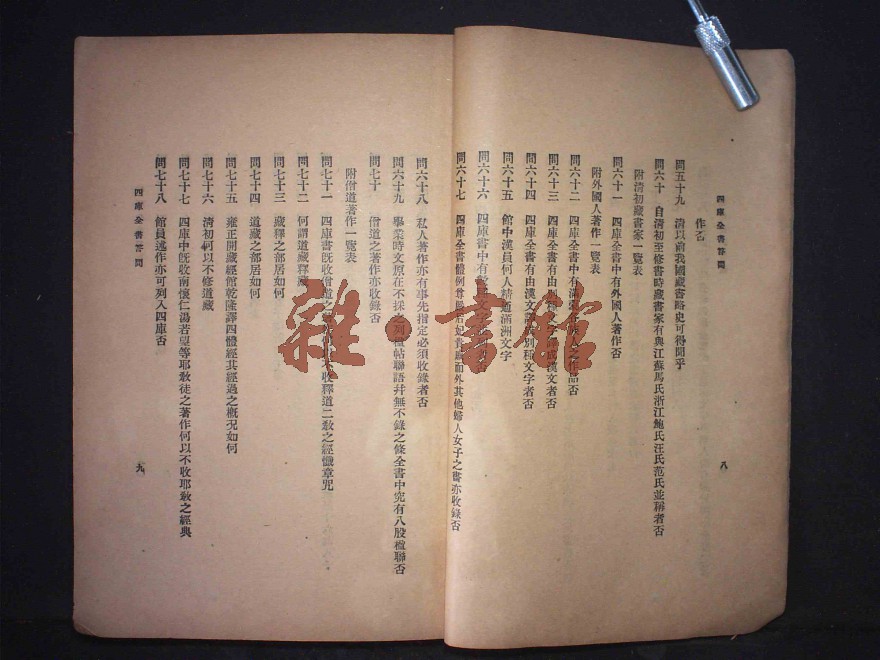 四庫全書答問
八
作否
問五十九　清以前我國藏書略史可得聞乎
問六十　自清初至修書時藏書家有與江蘇馬氏浙江鮑氏汪氏范氏並稱者否
附清初藏書家一覽表
問六十一　四庫全書中有外國人著作否
附外國人著作一覽表
問六十二　四庫全書中有滿人之作品否
問六十三　四庫全書有由別文字成漢文者否
問六十四　四庫全書有由漢文別種文字者否
問六十五　館中漢員何人精通滿洲文字
問六十六　四庫書中有否
問六十七　四庫全書體例后妃著而外其他婦人女子之書亦收錄否
問六十八　私人著作亦有事先指定必須收錄者否
問六十九　舉業時文原在不採之列楹帖聯語幷無不錄之條全書中究有八股楹聯否
問七十　僧道之著作亦收錄否
附僧道著作一覽表
問七十一　四庫書旣收僧道之收釋道二敎之經懺章咒
問七十二　何謂道藏釋藏
問七十三　藏釋之部居如何
問七十四　道藏之部居如何
問七十五　雍正開藏經館乾隆譯四體經其經過之槪況如何
問七十六　清初何以不修道藏
問七十七　四庫中旣收南懷仁湯若望等耶敎徒之著作何以不收耶敎之經典
問七十八　館員述作亦可列入四庫否
四庫全書答問
九
雜·書館